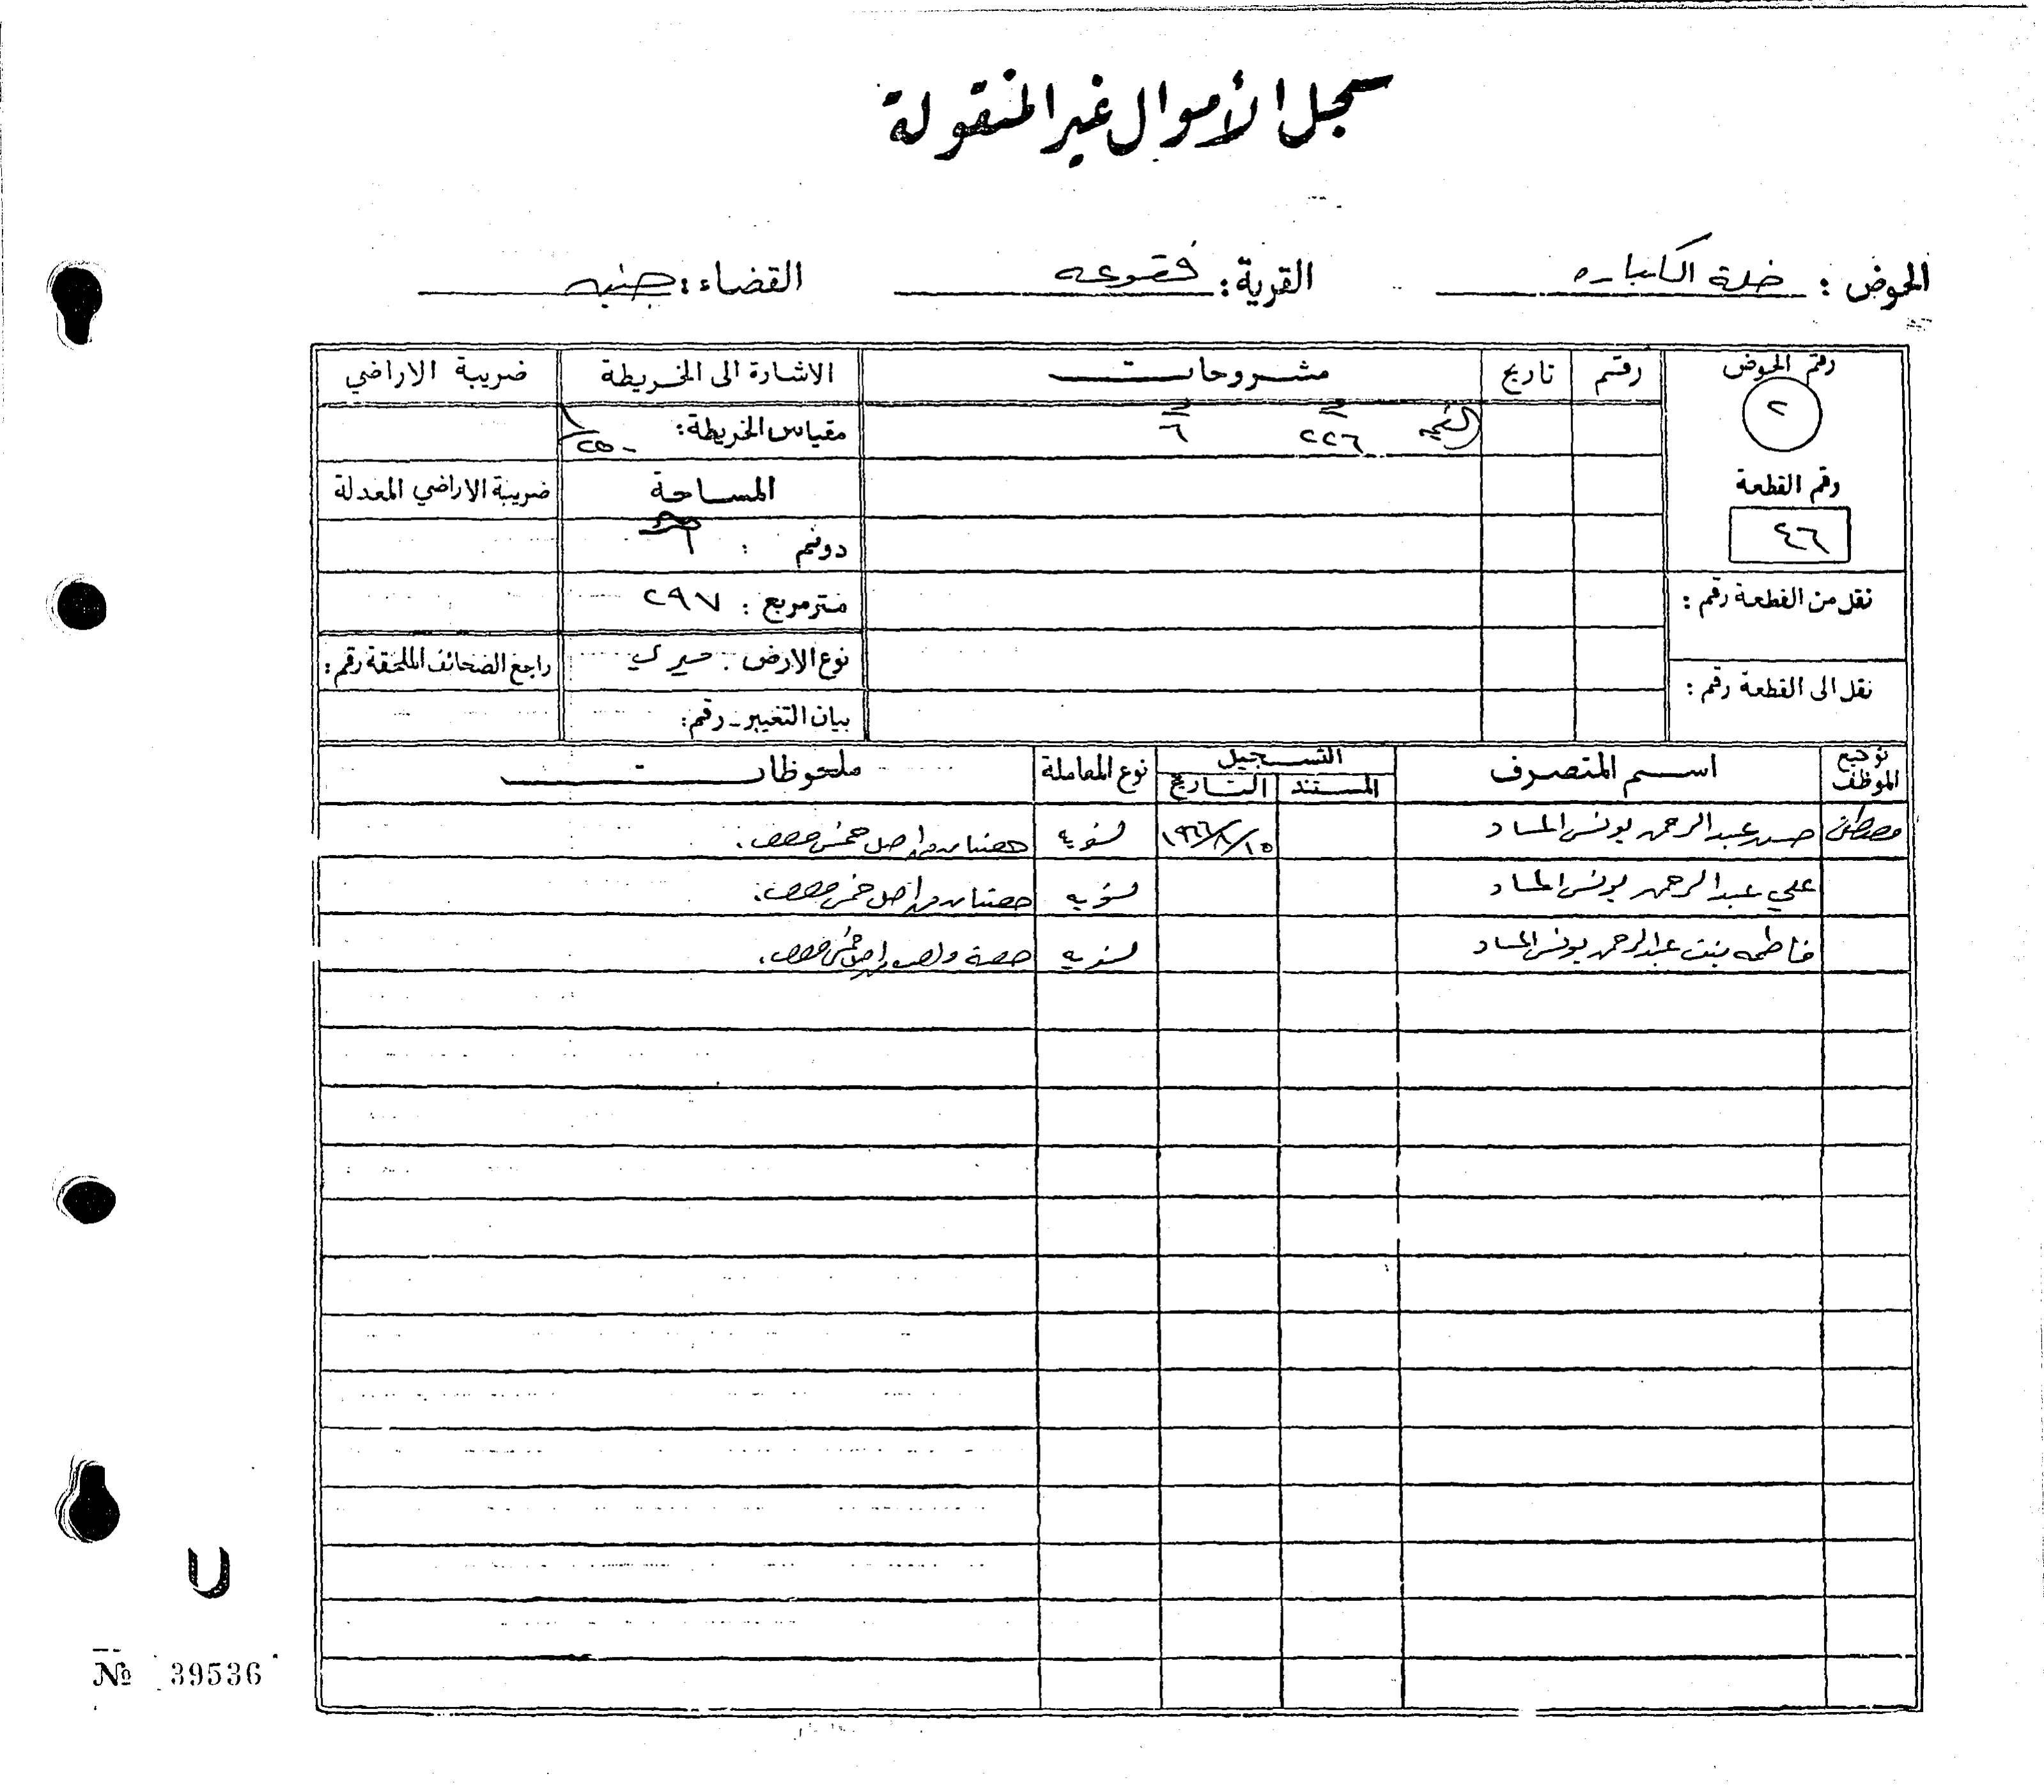 سجل الأموال غير المنقولة
الحوض : خلة الكباره القرية : فقوعه القضاء : جنين
رقم الحوض رقم تاريخ مشروحات الاشارة الى الخريطة ضريبة الاراضي
٢ القيمه ٢٢٦ ٦ مقياس الخريطة : ١/٢٥٠٠
رقم القطعة المساحة ضريبة الاراضي المعدلة
٤٦ دونم :
نقل من القطعة رقم : متر مربع : ٢٩٧
نوع الارض . ميري راجع الصحائف الملحقة رقم :
نقل الى القطعة رقم : بيان التغيير - رقم :
توقيع الموظف اسم المتصرف التسجيل نوع المعاملة ملحوظات
المستند التاريخ
مصطفى حسن عبد الرحمن يونس المساد ١٩٦٦/٨/١٥ تسويه حصتان من اصل خمس حصص .
علي عبد الرحمن يونس المساد تسويه حصتان من اصل خمس حصص .
فاطمه بنت عبد الرحمن يونس المساد تسويه حصة واحده من اصل خمس حصص .
U
№ 39536